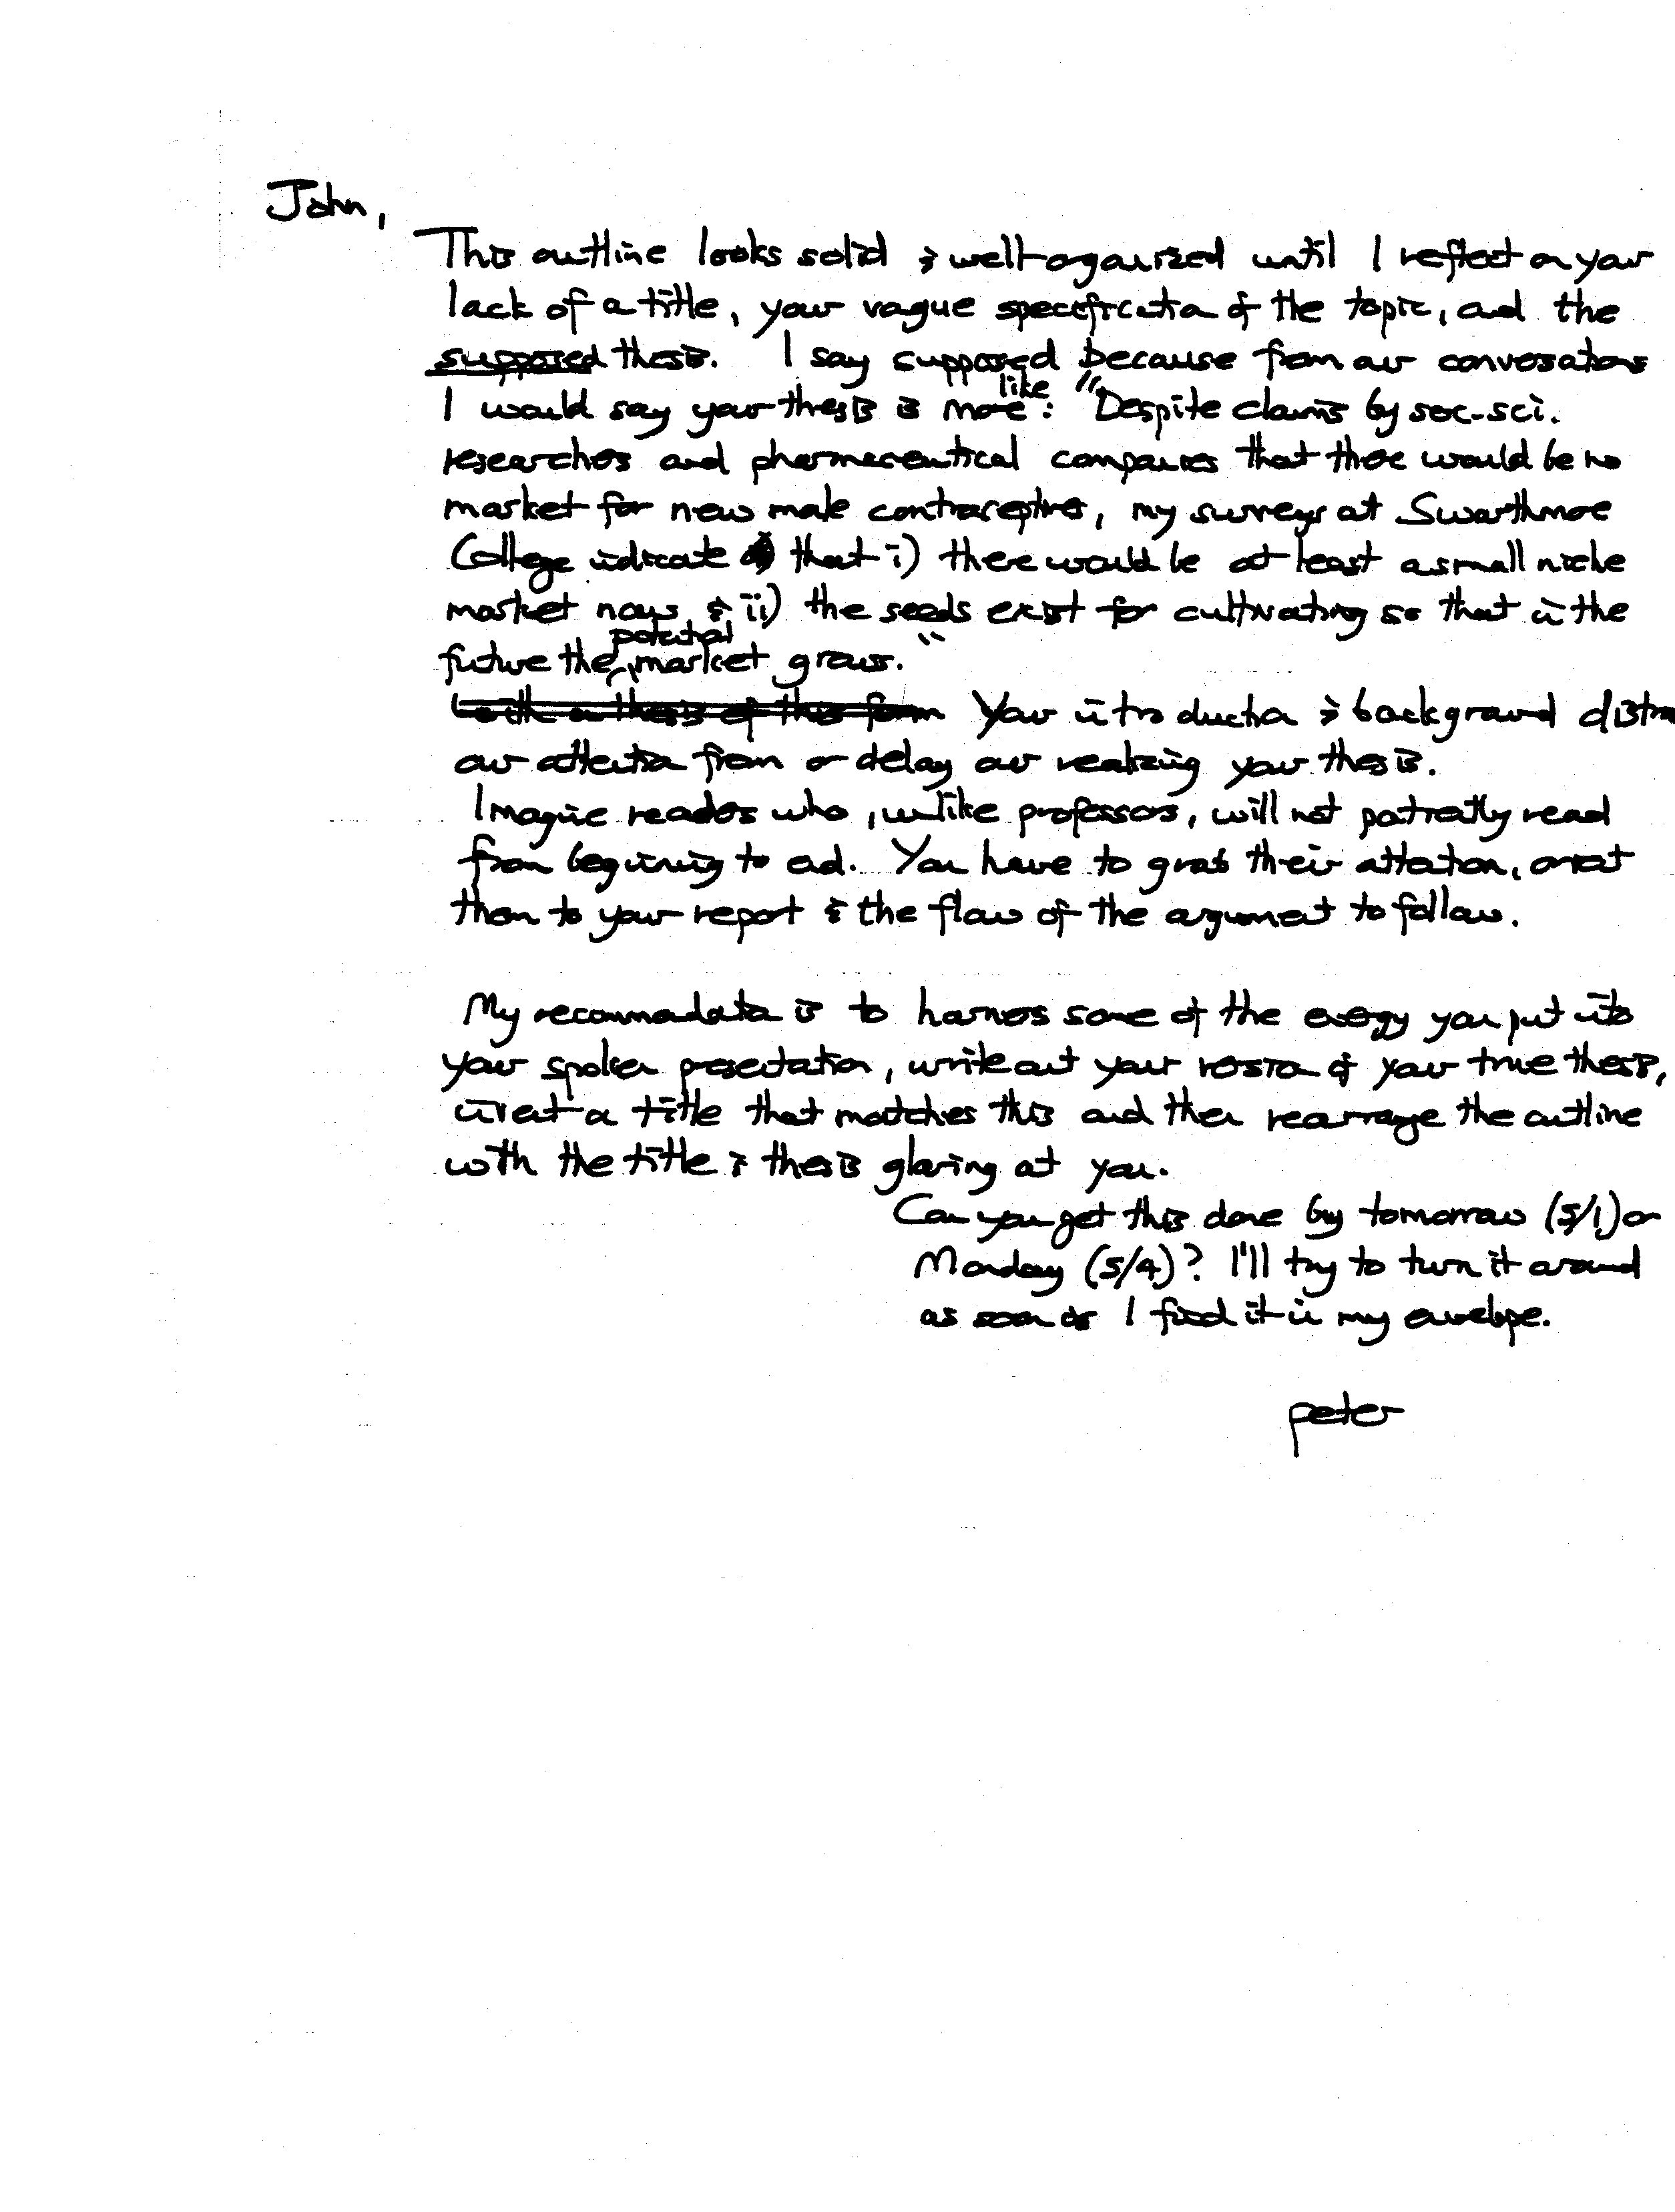 John,
This outline looks solid & well-organized until I reflect on your
lack of a title, your vague specification of the topic, and the
supposed thesis. I say supposed because from our conversations
like
I would say your thesis is more : "Despite claims by soc-sci.
researchers and pharmaceutical companies that there would be no
market for new male contraceptives, my surveys at Swarthmore
College indicate that i) there would be at least a small niche
market now & ii) the seeds exist for cultivating so that in the
potential
future the market grows."
with a thesis of this form Your introduction & background distra
our attention from or delay our realizing your thesis.
Imagine readers who, unlike professors, will not patiently read
from beginning to end. You have to grab their attention, orient
them to your report & the flow of the argument to follow.
My recommendation is to harness some of the energy you put into
your spoken presentation, write out your version of your true thesis,
invent a title that matches this and then rearrange the outline
with the title & thesis glaring at you.
Can you get this done by tomorrow (5/1) or
Monday (5/4)? I'll try to turn it around
as soon as I find it in my envelope.
peter